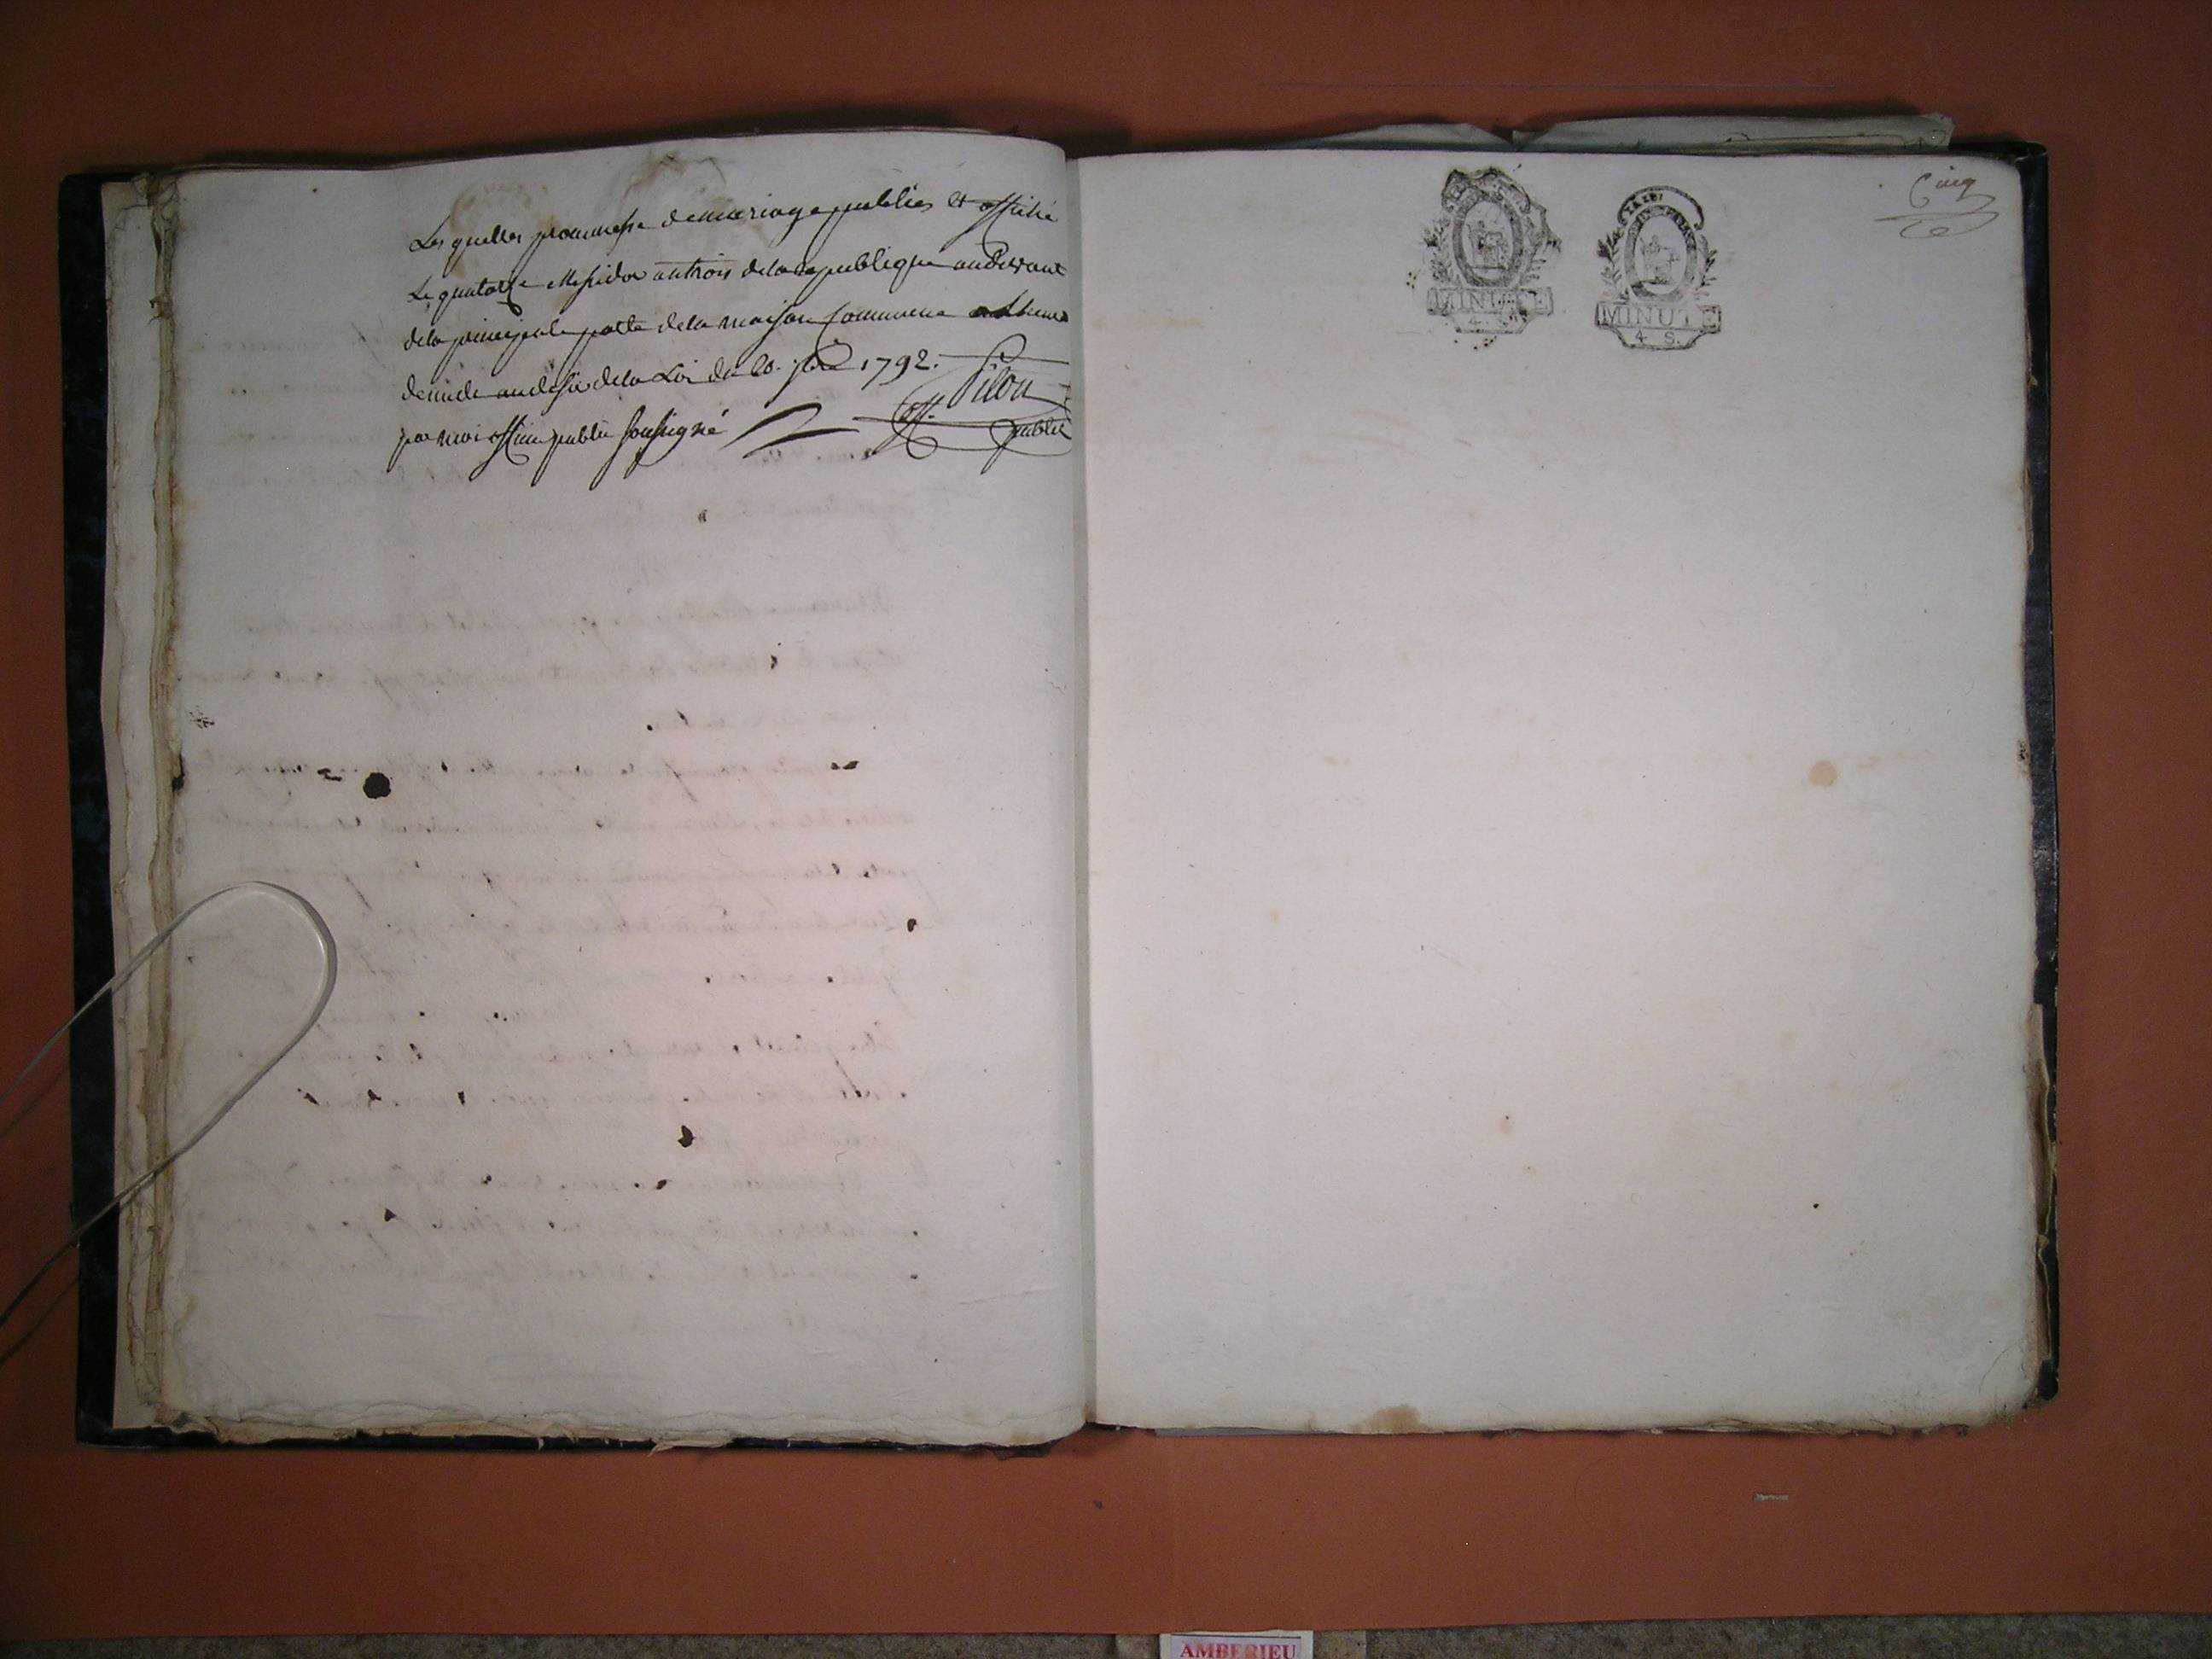 Lesquelles prommesse de mariage publiés et affiché
Le quatorze Messidor an trois de la republique audevant
de la principale porte de la maison commune a
de midi au desir de la Loi du 20. 7bre 1792.
par moi officier public soussigné
Pilon
off. public
Cinq
LA LOI
MINUTE
4. S.
MINUTE
4. S.
AMBERIEU